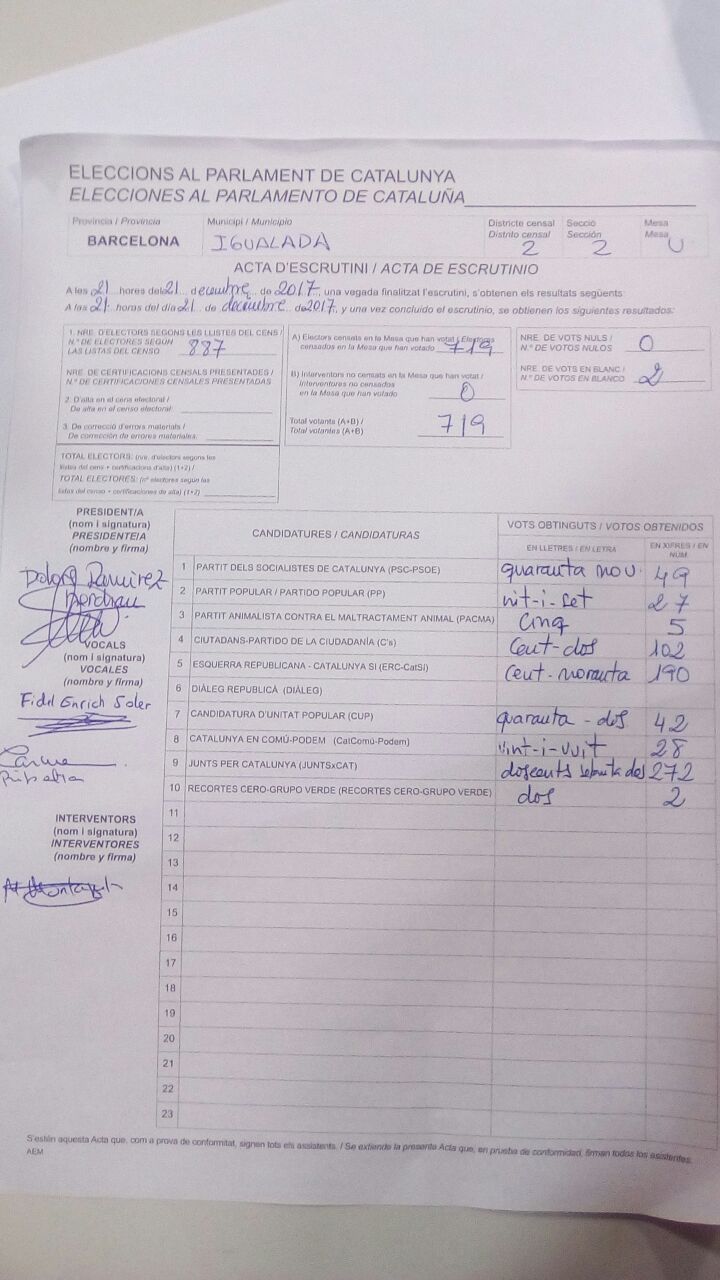 ELECCIONS AL PARLAMENT DE CATALUNYA
ELECCIONES AL PARLAMENTO DE CATALUÑA
Província / Provincia
BARCELONA
Municipi / Municipio
IGUALADA
Districte censal
Distrito censal
2
Secció
Sección
2
Mesa
Mesa
U
ACTA D'ESCRUTINI / ACTA DE ESCRUTINIO
A les 21 hores del 21 decembre de 2017, una vegada finalitzat l'escrutini, s'obtenen els resultats següents:
A las 21 horas del día 21 de decembre de 2017, y una vez concluido el escrutinio, se obtienen los siguientes resultados:
1. NRE. D'ELECTORS SEGONS LES LLISTES DEL CENS /
N.º DE ELECTORES SEGÚN
LAS LISTAS DEL CENSO 887
NRE. DE CERTIFICACIONS CENSALS PRESENTADES /
N.º DE CERTIFICACIONES CENSALES PRESENTADAS
2. D'alta en el cens electoral /
De alta en el censo electoral:
3. De correcció d'errors materials /
De corrección de errores materiales:
TOTAL ELECTORS: (nre. d'electors segons les
llistes del cens + certificacions d'alta) (1+2) /
TOTAL ELECTORES: (nº electores según las
listas del censo + certificaciones de alta) (1+2)
A) Electors censats en la Mesa que han votat / Electores
censados en la Mesa que han votado 719
B) Interventors no censats en la Mesa que han votat /
Interventores no censados
en la Mesa que han votado 0
Total votants (A+B) /
Total votantes (A+B) 719
NRE. DE VOTS NULS /
N.º DE VOTOS NULOS 0
NRE. DE VOTS EN BLANC /
N.º DE VOTOS EN BLANCO 2
PRESIDENT/A
(nom i signatura)
PRESIDENTE/A
(nombre y firma)
Ramirez
VOCALS
(nom i signatura)
VOCALES
(nombre y firma)
Fidel Enrich Soler
Carme
INTERVENTORS
(nom i signatura)
INTERVENTORES
(nombre y firma)
CANDIDATURES / CANDIDATURAS
VOTS OBTINGUTS / VOTOS OBTENIDOS
EN LLETRES / EN LETRA
EN XIFRES / EN
NUM.
1 PARTIT DELS SOCIALISTES DE CATALUNYA (PSC-PSOE) quaranta nou 49
2 PARTIT POPULAR / PARTIDO POPULAR (PP) vint-i-set 27
3 PARTIT ANIMALISTA CONTRA EL MALTRACTAMENT ANIMAL (PACMA) Cinq 5
4 CIUTADANS-PARTIDO DE LA CIUDADANÍA (C's) Cent-dos 102
5 ESQUERRA REPUBLICANA - CATALUNYA SÍ (ERC-CatSí) Cent-noranta 190
6 DIÀLEG REPUBLICÀ (DIÀLEG)
7 CANDIDATURA D'UNITAT POPULAR (CUP) quaranta - dos 42
8 CATALUNYA EN COMÚ-PODEM (CatComú-Podem) vint-i-vuit 28
9 JUNTS PER CATALUNYA (JUNTSxCAT) doscents setanta dos 272
10 RECORTES CERO-GRUPO VERDE (RECORTES CERO-GRUPO VERDE) dos 2
11
12
13
14
15
16
17
18
19
20
21
22
23
S'estén aquesta Acta que, com a prova de conformitat, signen tots els assistents. / Se extiende la presente Acta que, en prueba de conformidad, firman todos los asistentes.
AEM